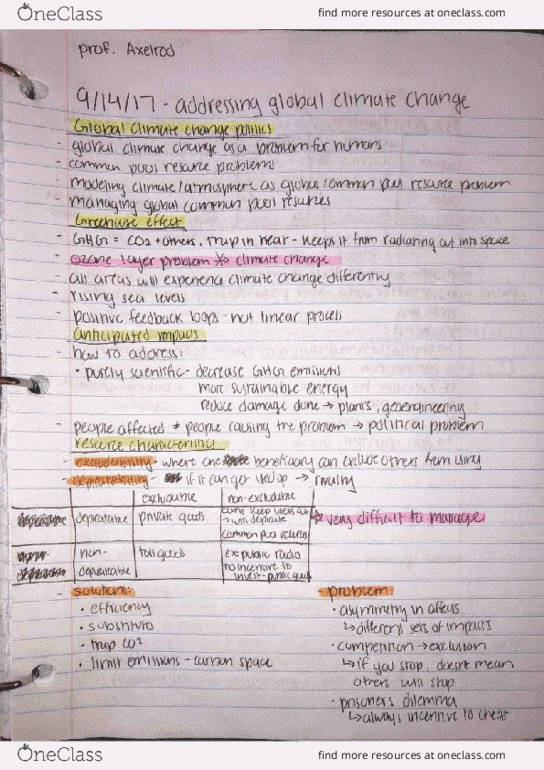 OneClass find more resources at oneclass.com
prof. Axelrod
9/14/17 - addressing global climate change
Global climate change politics
- global climate change as a problem for humans
- common pool resource problems
- modeling climate/atmosphere as global common pool resource problem
- managing global common pool resources
Greenhouse effect
- GHG = CO2 + others, trap in heat - keeps it from radiating out into space
- ozone layer problem climate change
- all areas will experience climate change differently
- rising sea levels
- positive feedback loops - not linear process
anticipated impacts
- how to address:
• purely scientific - decrease GHG emissions
more sustainable energy
reduce damage done → plants, geoengineering
- people affected ≠ people causing the problem → political problem
resource characteristics
- excludability - where one beneficiary can exclude others from using
- if it can get used up → rivalry
excludable non-excludable
depletable private goods can't keep users out → will deplete common pool resources → very difficult to manage
non-depletable toll goods ex: public radio no incentive to invest - public goods
- solutions:
• efficiency
• substitute
• trap CO2
• limit emissions - carbon space
- problem:
• asymmetry in affects
↳ different sets of impacts
• competition → exclusion
↳ if you stop, doesn't mean
others will stop
• prisoners dilemma
↳ always incentive to cheat
OneClass find more resources at oneclass.com